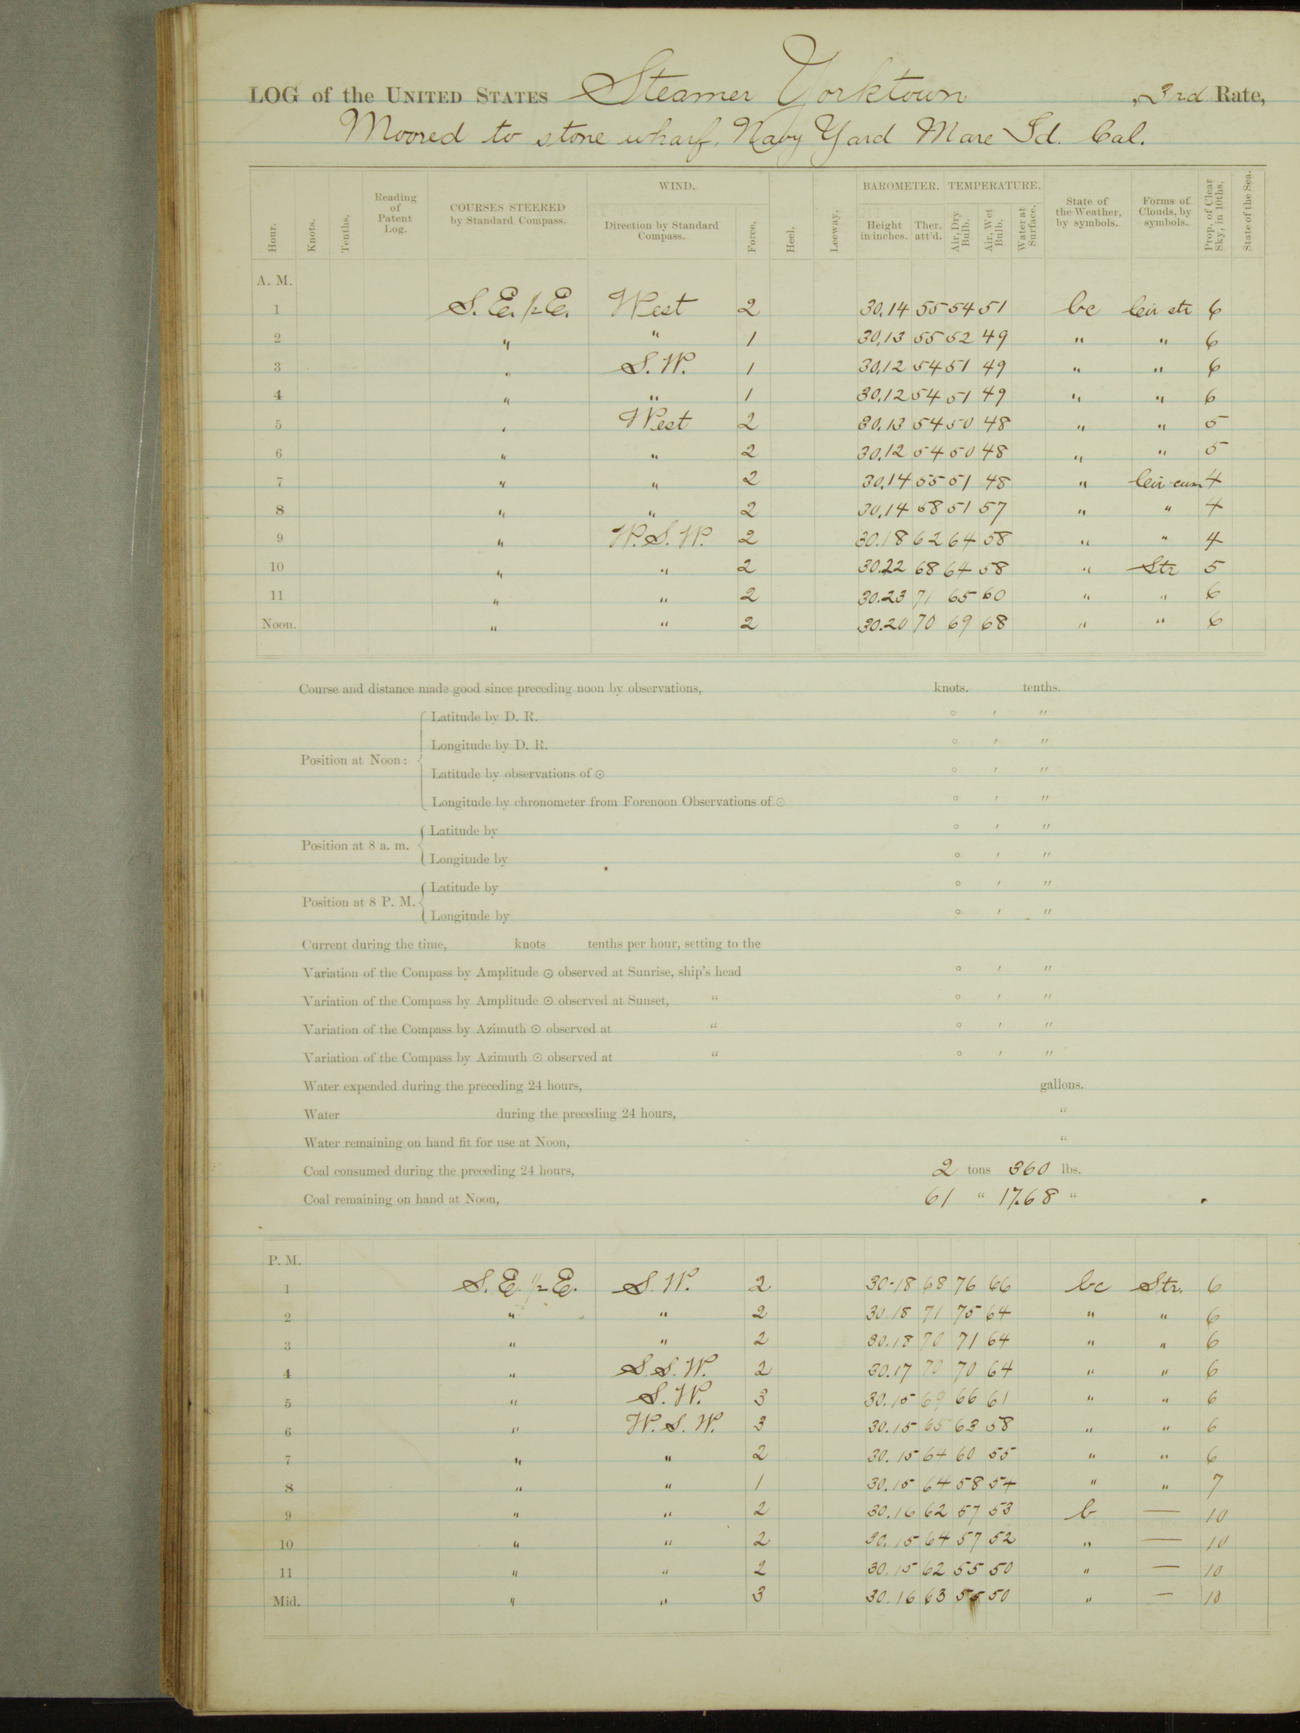 LOG of the UNITED STATES Steamer Yorktown, 3rd Rate,
Moored to stone wharf, Navy Yard Mare Id. Cal.
Hour. Knots. Tenths. Reading of Patent Log. COURSES STEERED by Standard Compass. WIND. Direction by Standard Compass. Force. Heel. Leeway. BAROMETER. Height in inches. Ther. att'd. TEMPERATURE. Air, Dry Bulb. Air, Wet Bulb. Water at Surface. State of the Weather, by symbols. Forms of Clouds, by symbols. Prop. of Clear Sky, in 10ths. State of the Sea.
A. M.
1 S. E. 1/2 E. West 2 30.14 55 54 51 bc Cir str 6
2 " " 1 30.13 55 52 49 " " 6
3 " S. W. 1 30.12 54 51 49 " " 6
4 " " 1 30.12 54 51 49 " " 6
5 " West 2 30.13 54 50 48 " " 5
6 " " 2 30.12 54 50 48 " " 5
7 " " 2 30.14 55 51 48 " Cir-cum 4
8 " " 2 30.14 58 51 57 " " 4
9 " W. S. W. 2 30.18 62 64 58 " " 4
10 " " 2 30.22 68 64 58 " Str 5
11 " " 2 30.23 71 65 60 " " 6
Noon. " " 2 30.20 70 69 68 " " 6
Course and distance made good since preceding noon by observations, knots. tenths.
Position at Noon: Latitude by D. R. ° ′ ″
Longitude by D. R. ° ′ ″
Latitude by observations of ☉ ° ′ ″
Longitude by chronometer from Forenoon Observations of ☉ ° ′ ″
Position at 8 a. m. Latitude by ° ′ ″
Longitude by ° ′ ″
Position at 8 P. M. Latitude by ° ′ ″
Longitude by ° ′ ″
Current during the time, knots tenths per hour, setting to the
Variation of the Compass by Amplitude ☉ observed at Sunrise, ship's head ° ′ ″
Variation of the Compass by Amplitude ☉ observed at Sunset, " ° ′ ″
Variation of the Compass by Azimuth ☉ observed at " ° ′ ″
Variation of the Compass by Azimuth ☉ observed at " ° ′ ″
Water expended during the preceding 24 hours, gallons.
Water during the preceding 24 hours, "
Water remaining on hand fit for use at Noon, "
Coal consumed during the preceding 24 hours, 2 tons 360 lbs.
Coal remaining on hand at Noon, 61 " 1768 "
P. M.
1 S. E. 1/2 E. S. W. 2 30.18 68 76 66 bc Str. 6
2 " " 2 30.18 71 75 64 " " 6
3 " " 2 30.18 70 71 64 " " 6
4 " S. S. W. 2 30.17 70 70 64 " " 6
5 " S. W. 3 30.15 69 66 61 " " 6
6 " W. S. W. 3 30.15 65 63 58 " " 6
7 " " 2 30.15 64 60 55 " " 6
8 " " 1 30.15 64 58 54 " " 7
9 " " 2 30.16 62 57 53 b — 10
10 " " 2 30.15 64 57 52 " — 10
11 " " 2 30.15 62 55 50 " — 10
Mid. " " 3 30.16 63 55 50 " — 10